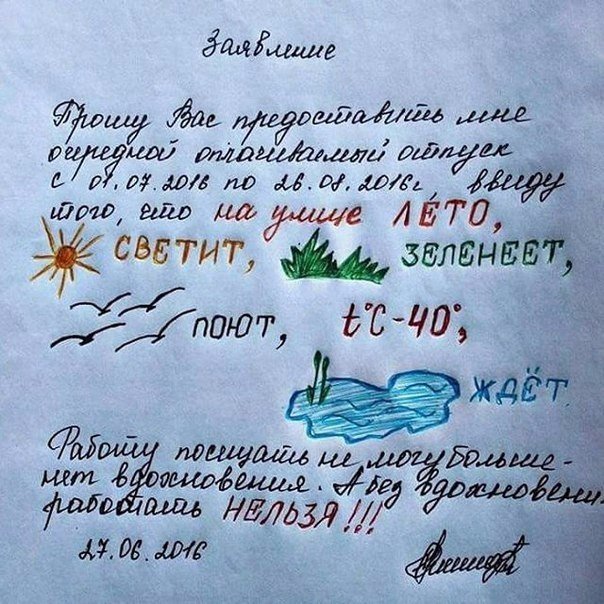 Заявление
Прошу Вас предоставить мне
очередной оплачиваемый отпуск
с 01.07.2016 по 26.08.2016г, ввиду
того, что на улице ЛЕТО,
СВЕТИТ, ЗЕЛЕНЕЕТ,
ПОЮТ, t°C-40°,
ЖДЁТ.
Работу посещать не могу больше-
нет вдохновения. А без вдохновени
работать НЕЛЬЗЯ!!!
27.06.2016